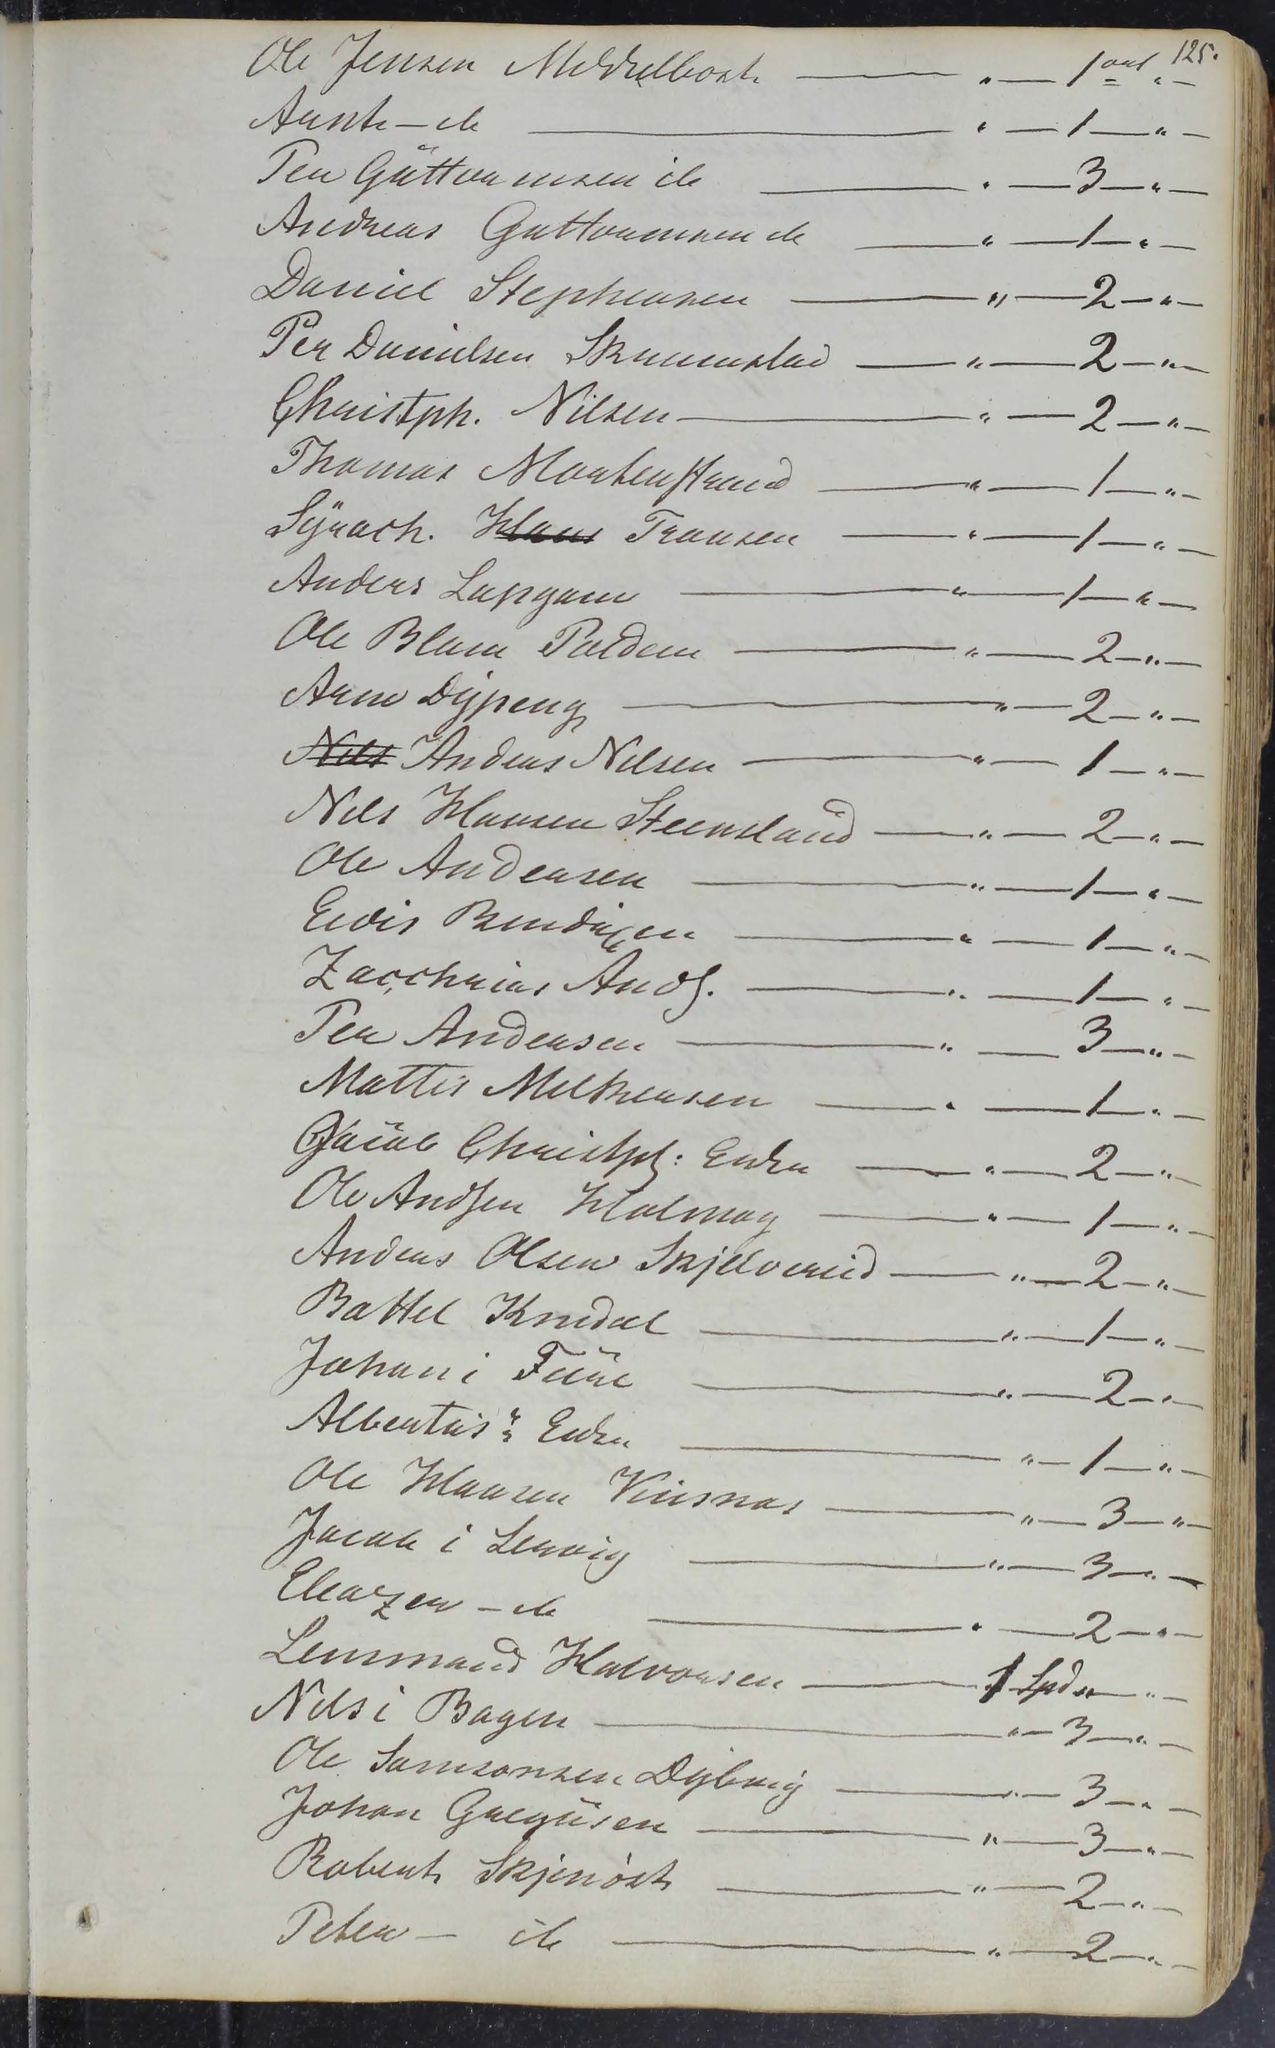 125.
Ole Jensen Meddelbost — " — 1 ort " —
Arnt — do — " — 1 — " —
Per Güttormsen do — " — 3 — " —
Andreas Guttormsen do — " — 1 — " —
Daniel Stephensen — " — 2 — " —
Per Danielsen — " — 2 — " —
Christph. Nilsen — " — 2 — " —
Thomas — " — 1 — " —
Syrach. Hans Fransen — " — 1 — " —
Anders — " — 1 — " —
Ole Blam — " — 2 — " —
Arne Dypeng — " — 2 — " —
Nils Anders Nilsen — " — 1 — " —
Nils Hansen Steensland — " — 2 — " —
Ole Andersen — " — 1 — " —
Bendixen — " — 1 — " —
Zaccharias Ands. — " — 1 — " —
Per Andersen — " — 3 — " —
Mattis Melkersen — " — 1 — " —
Jacob Christph: — " — 2 — " —
Ole Andsen Holmøy — " — 1 — " —
Anders Olsen Skjelvereid — " — 2 — " —
Battel Krudal — " — 1 — " —
Johan i — " — 2 — " —
Albertus — " — 1 — " —
Ole Hansen — " — 3 — " —
Jacob i Lervig — " — 3 — " —
Eleazer — do — " — 2 — " —
Lensmand Halvorsen — 1 Spd " — " —
Nils i Bogen — " — 3 — " —
Ole Samsonsen Dybvig — " — 3 — " —
Johan Gregüsen — " — 3 — " —
Robert Skjenöst — " — 2 — " —
Peter — do — " — 2 — " —